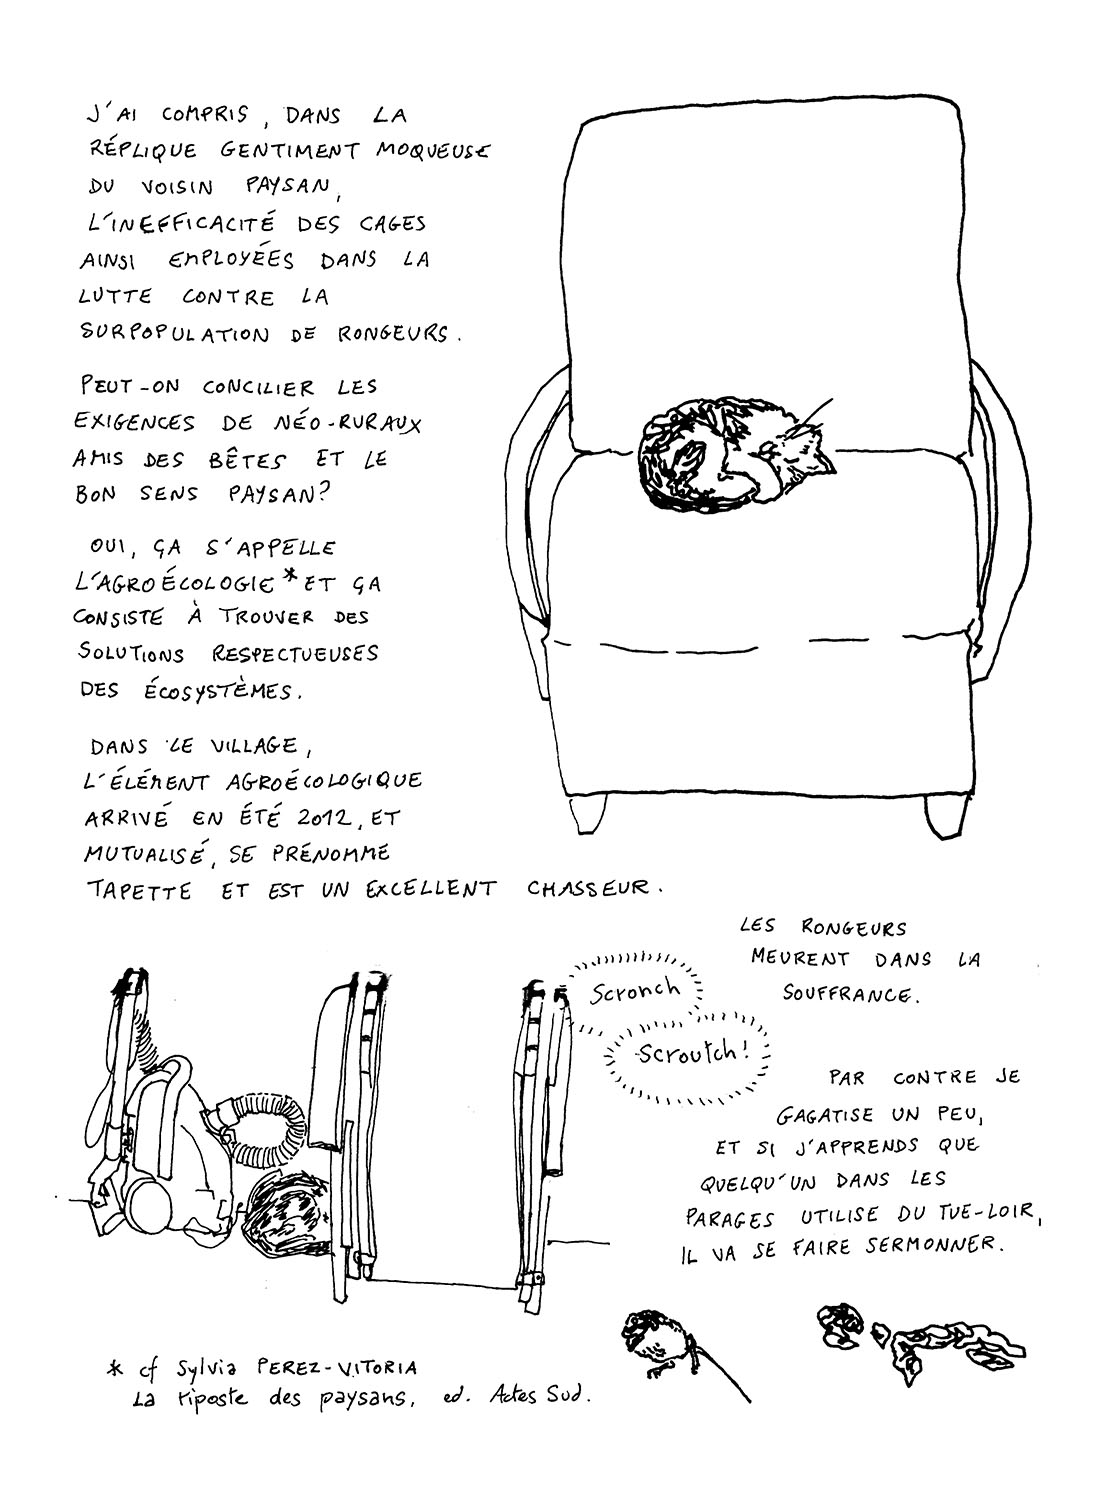 J'AI COMPRIS, DANS LA
RÉPLIQUE GENTIMENT MOQUEUSE
DU VOISIN PAYSAN,
L'INEFFICACITÉ DES CAGES
AINSI EMPLOYÉES DANS LA
LUTTE CONTRE LA
SURPOPULATION DE RONGEURS.
PEUT-ON CONCILIER LES
EXIGENCES DE NÉO-RURAUX
AMIS DES BÊTES ET LE
BON SENS PAYSAN?
OUI, ÇA S'APPELLE
L'AGROÉCOLOGIE* ET ÇA
CONSISTE À TROUVER DES
SOLUTIONS RESPECTUEUSES
DES ÉCOSYSTÈMES.
DANS LE VILLAGE,
L'ÉLÉMENT AGROÉCOLOGIQUE
ARRIVÉ EN ÉTÉ 2012, ET
MUTUALISÉ, SE PRÉNOMME
TAPETTE ET EST UN EXCELLENT CHASSEUR.
LES RONGEURS
MEURENT DANS LA
SOUFFRANCE.
Scronch
Scroutch!
PAR CONTRE JE
GAGATISE UN PEU,
ET SI J'APPRENDS QUE
QUELQU'UN DANS LES
PARAGES UTILISE DU TUE-LOIR,
IL VA SE FAIRE SERMONNER.
* cf Sylvia PEREZ-VITORIA
La riposte des paysans, ed. Actes Sud.